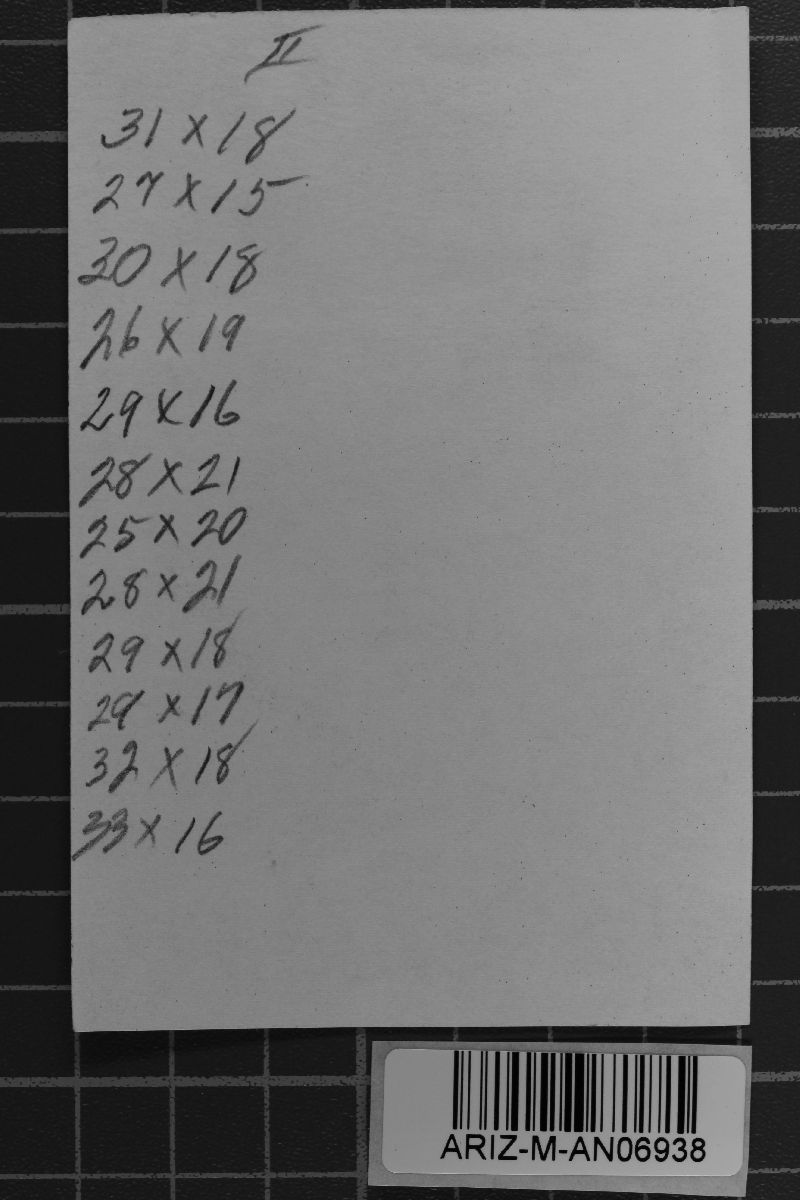 II
31 x 18
27 x 15
30 x 18
26 x 19
29 x 16
28 x 21
25 x 20
28 x 21
29 x 18
29 x 17
32 x 18
33 x 16
ARIZ-M-AN06938